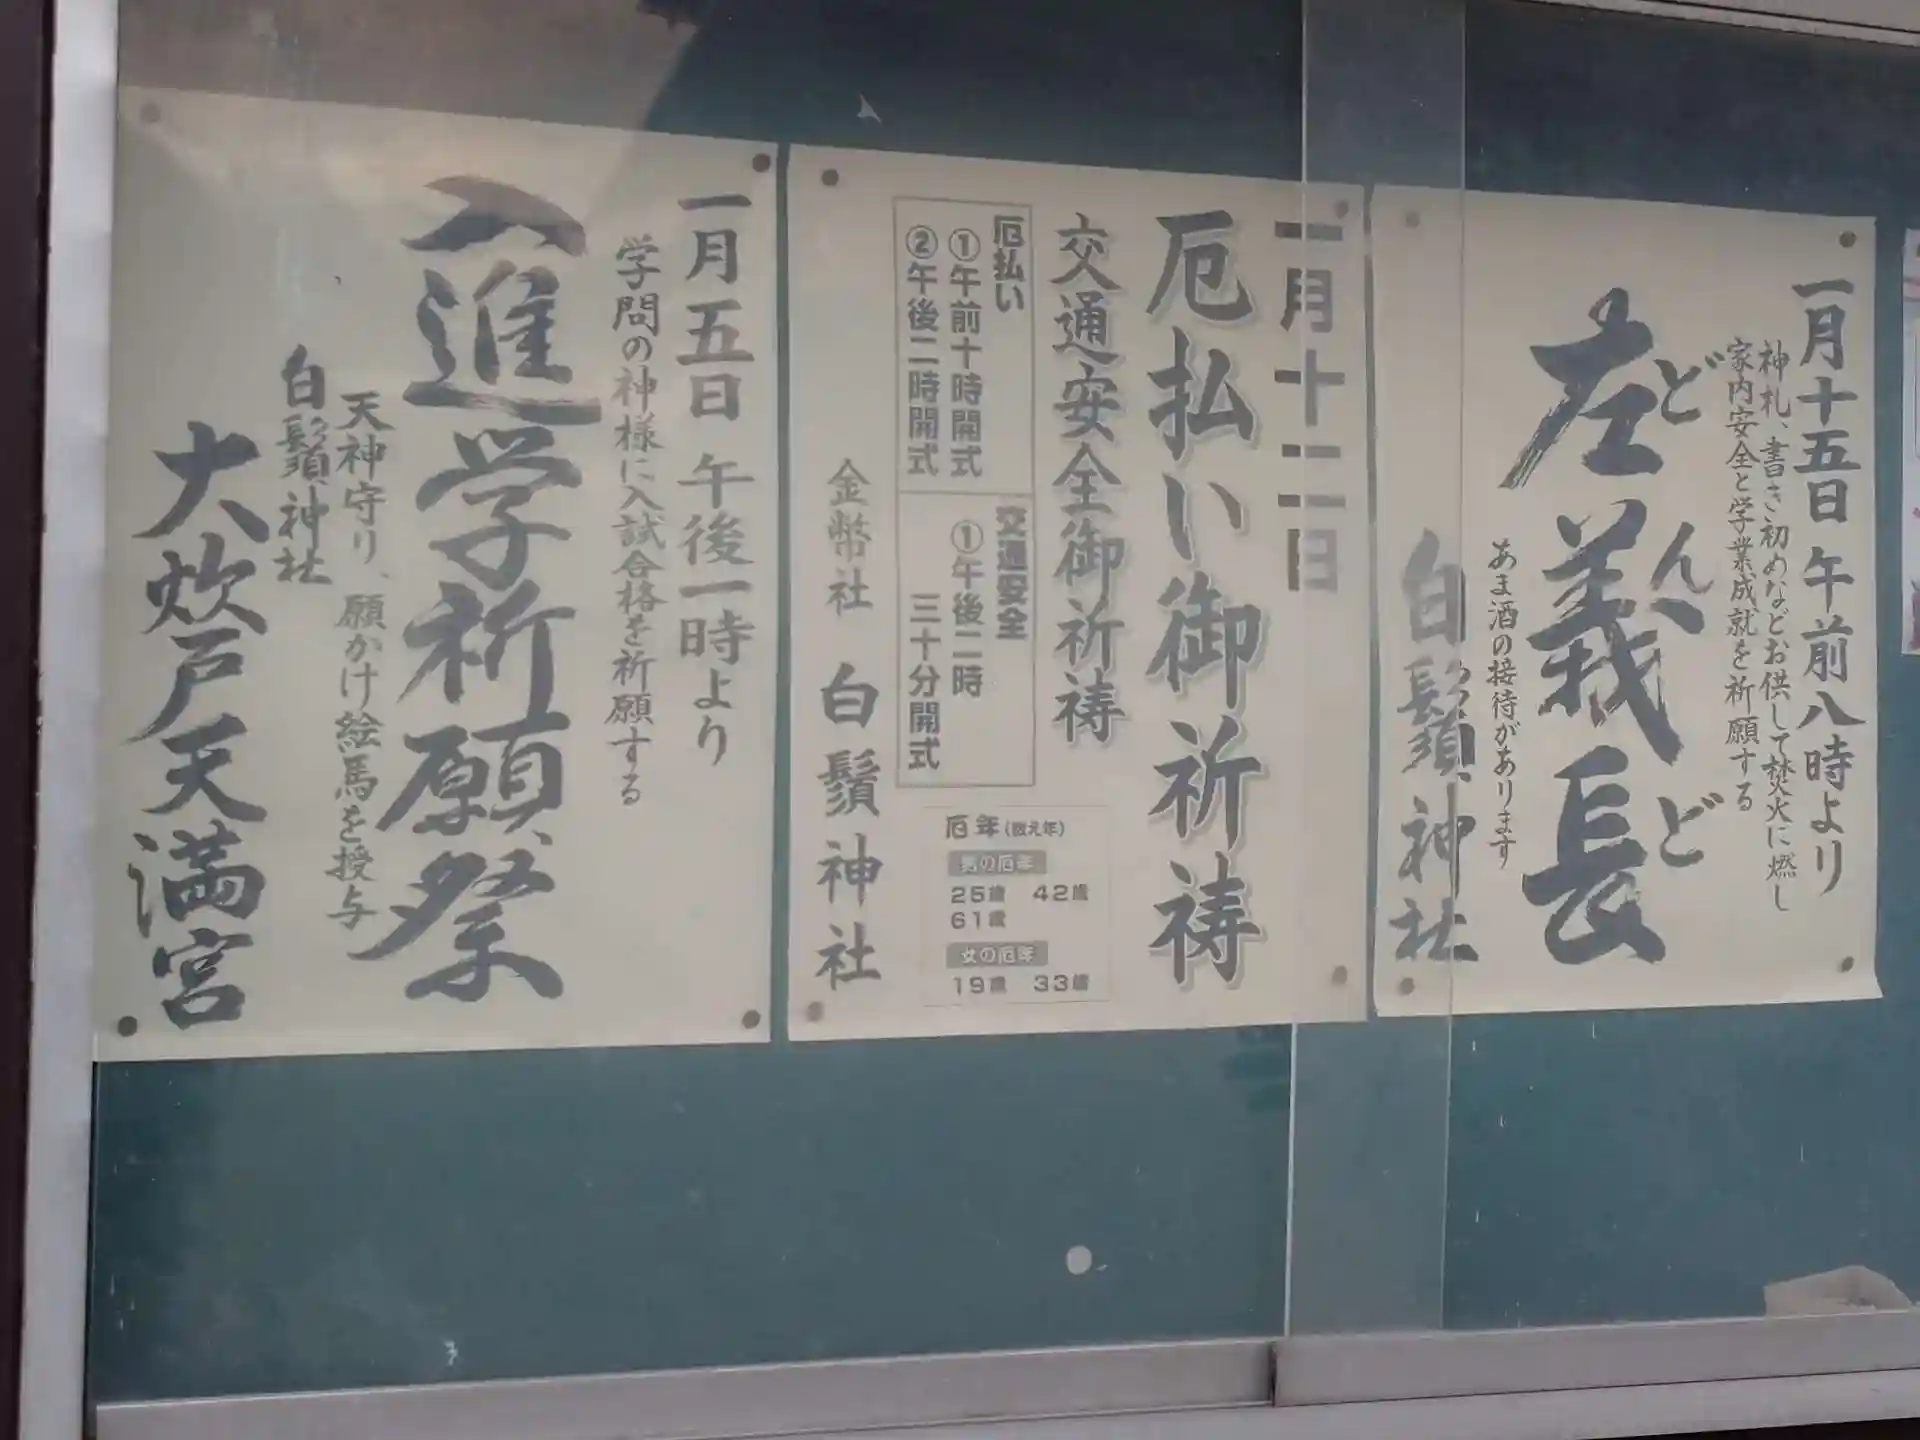 一月十五日 午前八時より
神札、書き初めなどお供して焚火に燃し
家内安全と学業成就を祈願する
どんど
左義長
あま酒の接待があります
白鬚神社
一月十二日
厄払い御祈祷
交通安全御祈祷
厄払い
①午前十時開式
②午後二時開式
交通安全
①午後二時
三十分開式
厄年(数え年)
男の厄年
25歳 42歳
61歳
女の厄年
19歳 33歳
金幣社 白鬚神社
一月五日 午後一時より
学問の神様に入試合格を祈願する
入進学祈願祭
天神守り、願かけ絵馬を授与
白鬚神社
大炊戸天満宮